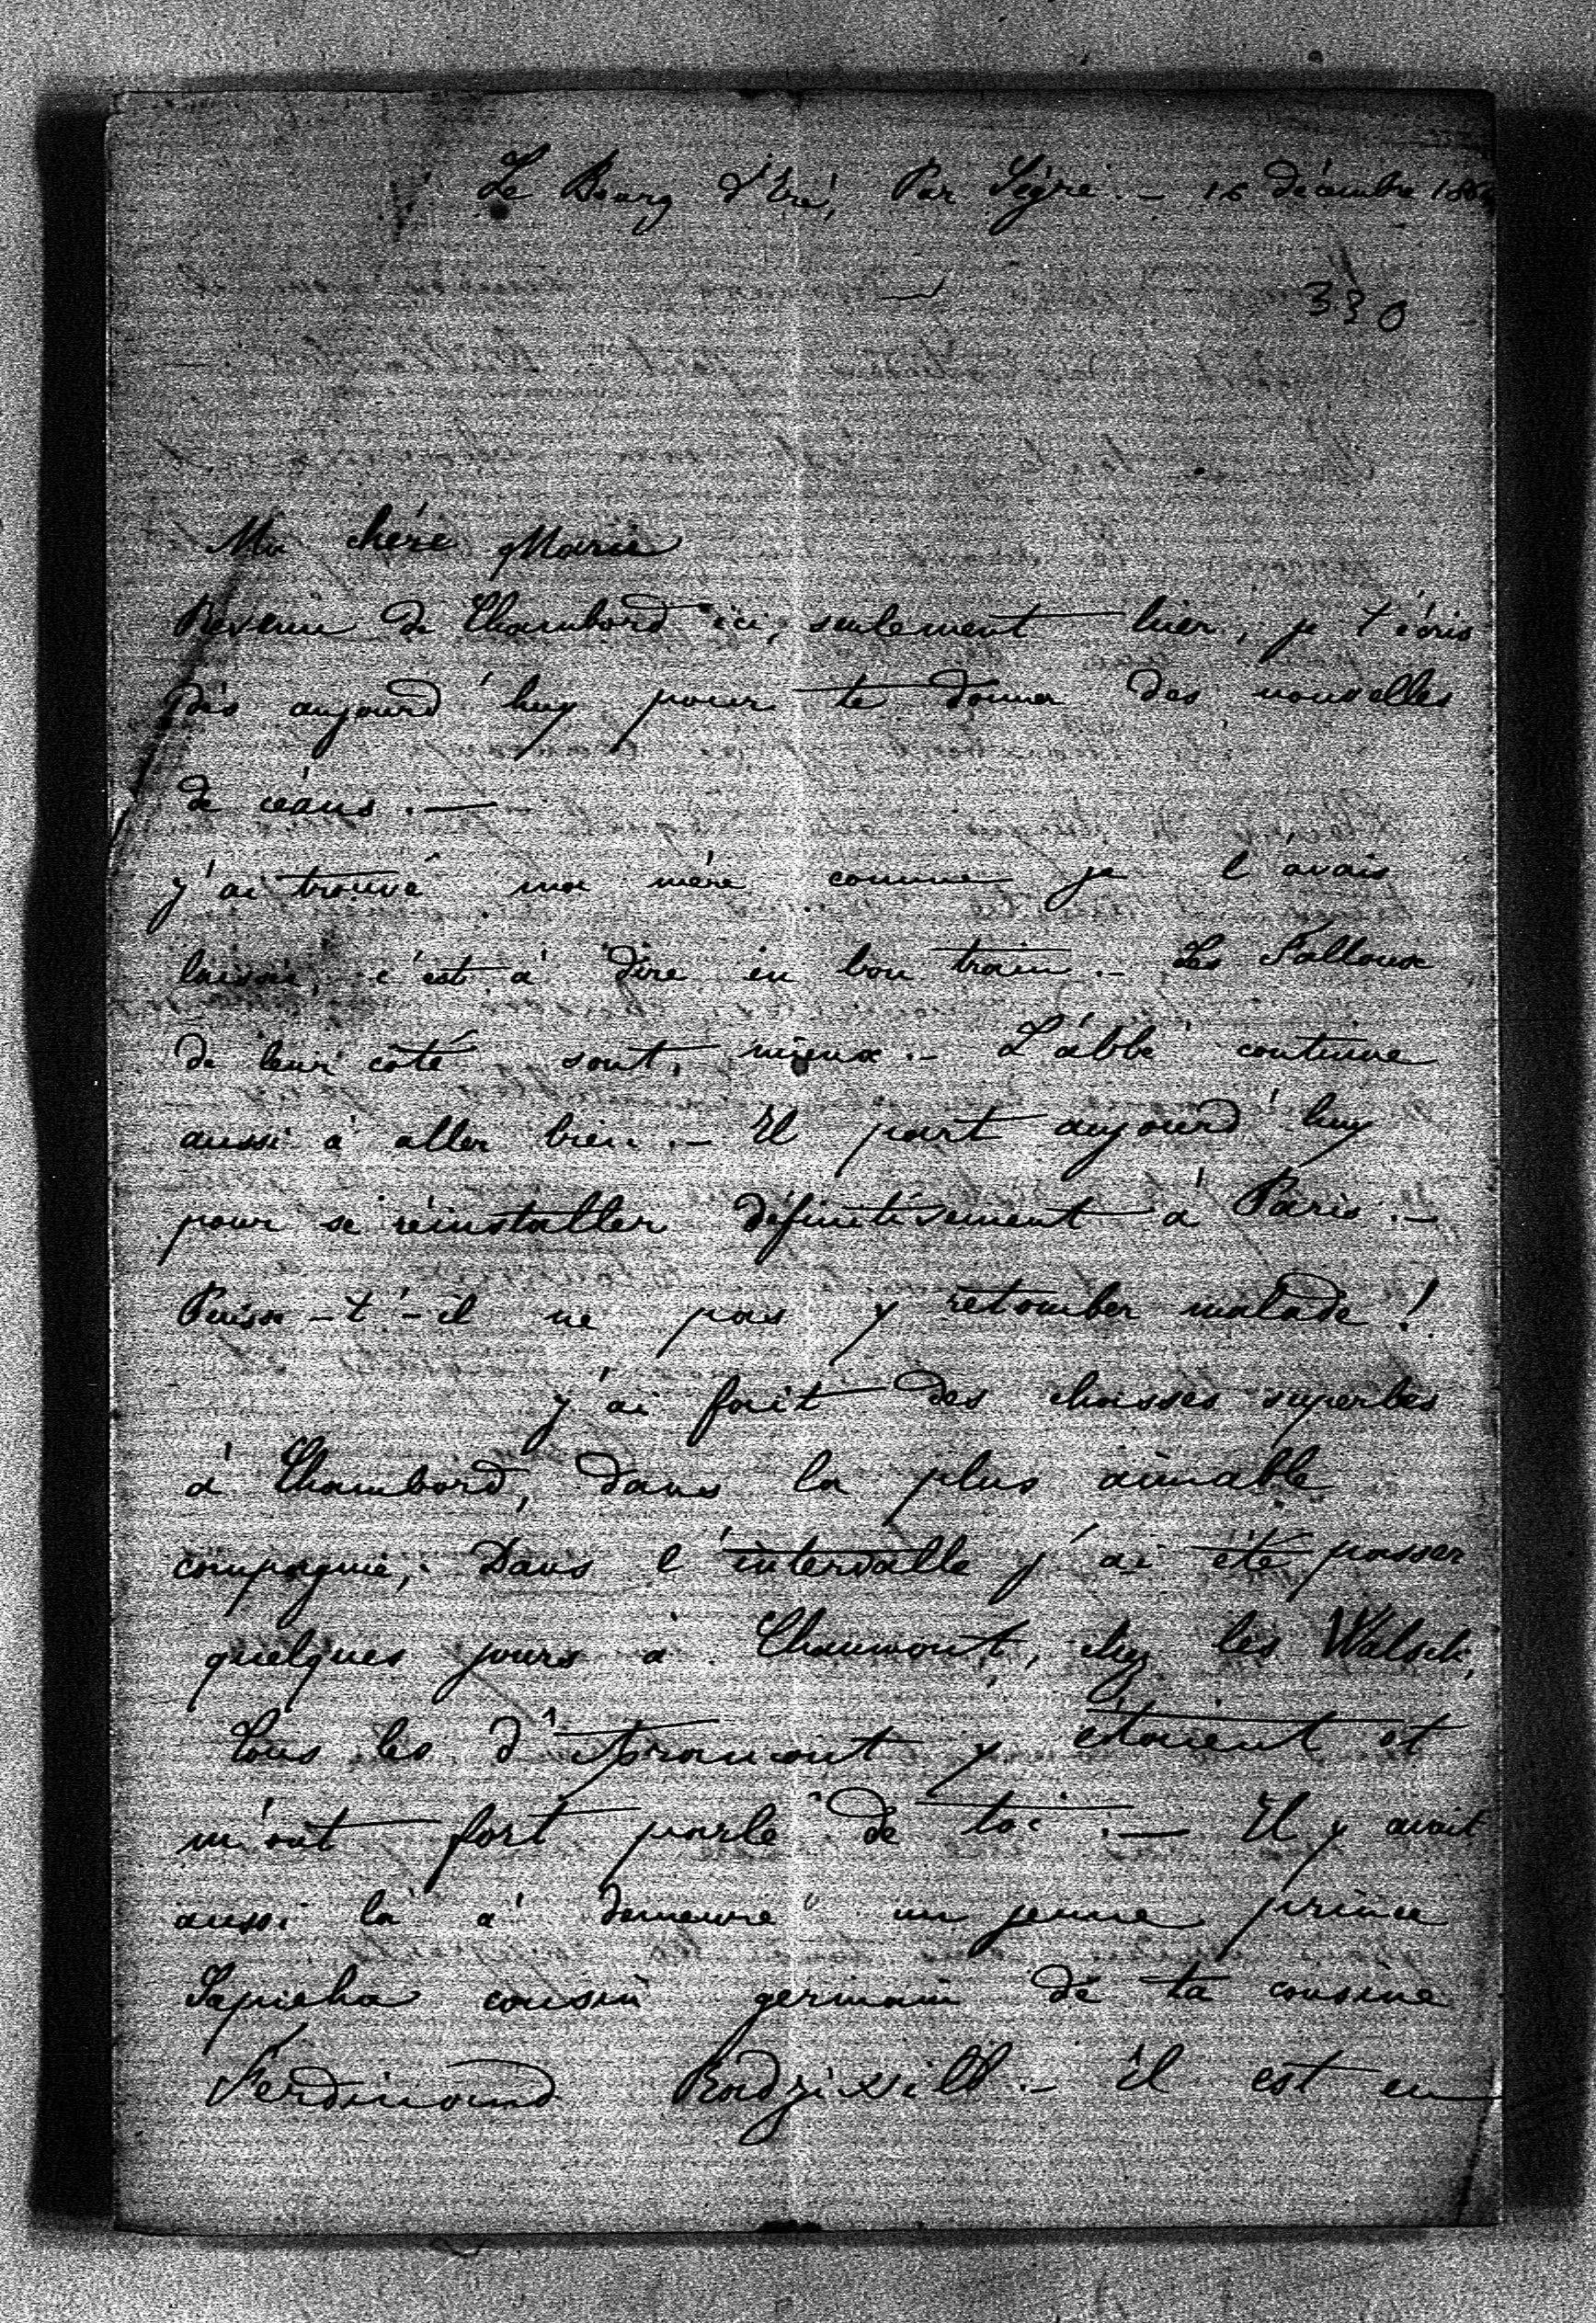 Le Bourg d'Iré, Par Ségré. – 16 décembre 186
330
Ma chére Marie
Revenu de Chambord ici, seulement hier, je t'écris
dés aujourd'huy pour te donner des nouvelles
de céans. —
J'ai trouvé ma mére comme je l'avais
laissé, c'est à dire en bon train. – Les Falloux
de leur coté sont, mieux. – L'abbé continue
aussi à aller bien. – Il part aujourd'huy
pour se réinstaller définitivement à Paris. –
Puisse-t'-il ne pas y retomber malade !
J'ai fait des chasses superbes
à Chambord, dans la plus aimable
compagnie, Dans l'intervalle j'ai été passer
quelques jours à Chaumont, chez les Walsh,
Tous les d'Aramont y étaient et
m'ont fort parlé de toi. — Il y avait
aussi là à demeure un jeune prince
Sapieha cousin germain de ta cousine
Ferdinand Radziwill. – il est en